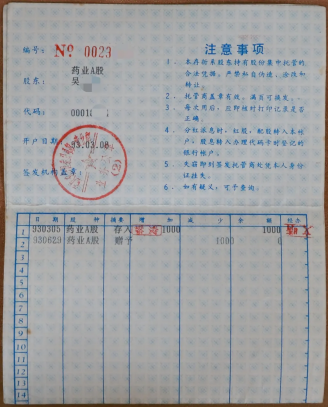 编号: № 0023
药业A股
股东: 吴
代码: 0001
开户日期: 93.03.08
签发机构盖章:
(2)
注意事项
1. 本存折是股东持有股份集中托管的合法凭据,严禁私自伪造、涂改和转让。
2. 托管商盖章有效,满页可换发。
3. 每次用后,应即核对打印记录是否正确。
4. 分红派息时,红股、配股转入本帐户,股息转入办理代码卡时登记的银行帐户。
5. 失窃即到签发托管商处凭本人身份证挂失。
6. 如有疑义,可予查询。
日期 股种 摘要 增加 减少 余额 经办
1 930305 药业A股 存入 1000 1000
2 930629 药业A股 赠予 1000 0
3
4
5
6
7
8
9
10
11
12
13
14